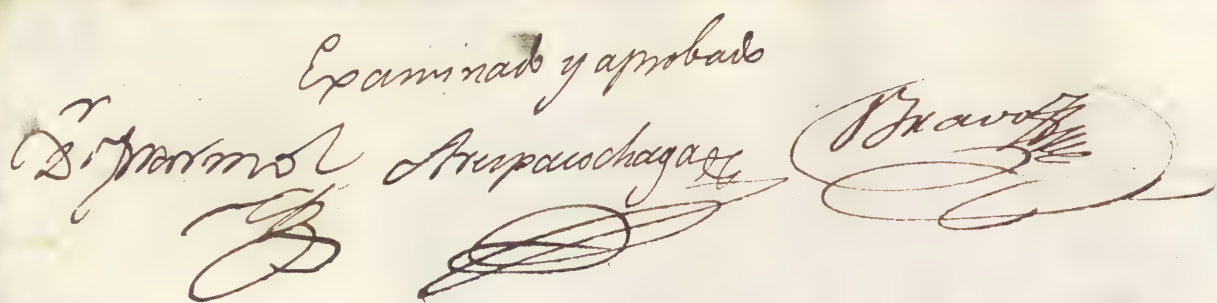 Examinado y aprobado
Dr. Marmol Arespacochaga Bravo